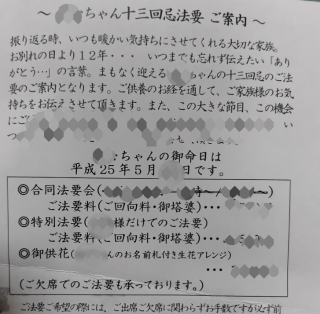 ～ ちゃん十三回忌法要 ご案内 ～
振り返る時、いつも暖かい気持ちにさせてくれる大切な家族。
お別れの日より１２年・・・ いつまでも忘れず伝えたい「あり
がとう…」の言葉。まもなく迎える ちゃんの十三回忌のご法
要のご案内となります。ご供養のお経を通して、ご家族様のお気
持ちをお伝えさせて頂きます。また、この大きな節目、この機会
にご
い
つ
ちゃんの御命日は
平成２５年５月 日です。
◎合同法要会（ 時～ ～）
ご法要料（ご回向料・御塔婆）…
◎特別法要（ 様だけでのご法要）
ご法要料（ご回向料・御塔婆）…
◎御供花（ んのお名前札付き生花アレンジ）
…
（ご欠席でのご法要も承っております。）
ご法要ご希望の際には、ご出席ご欠席に関わらずお手数ですが必ず前